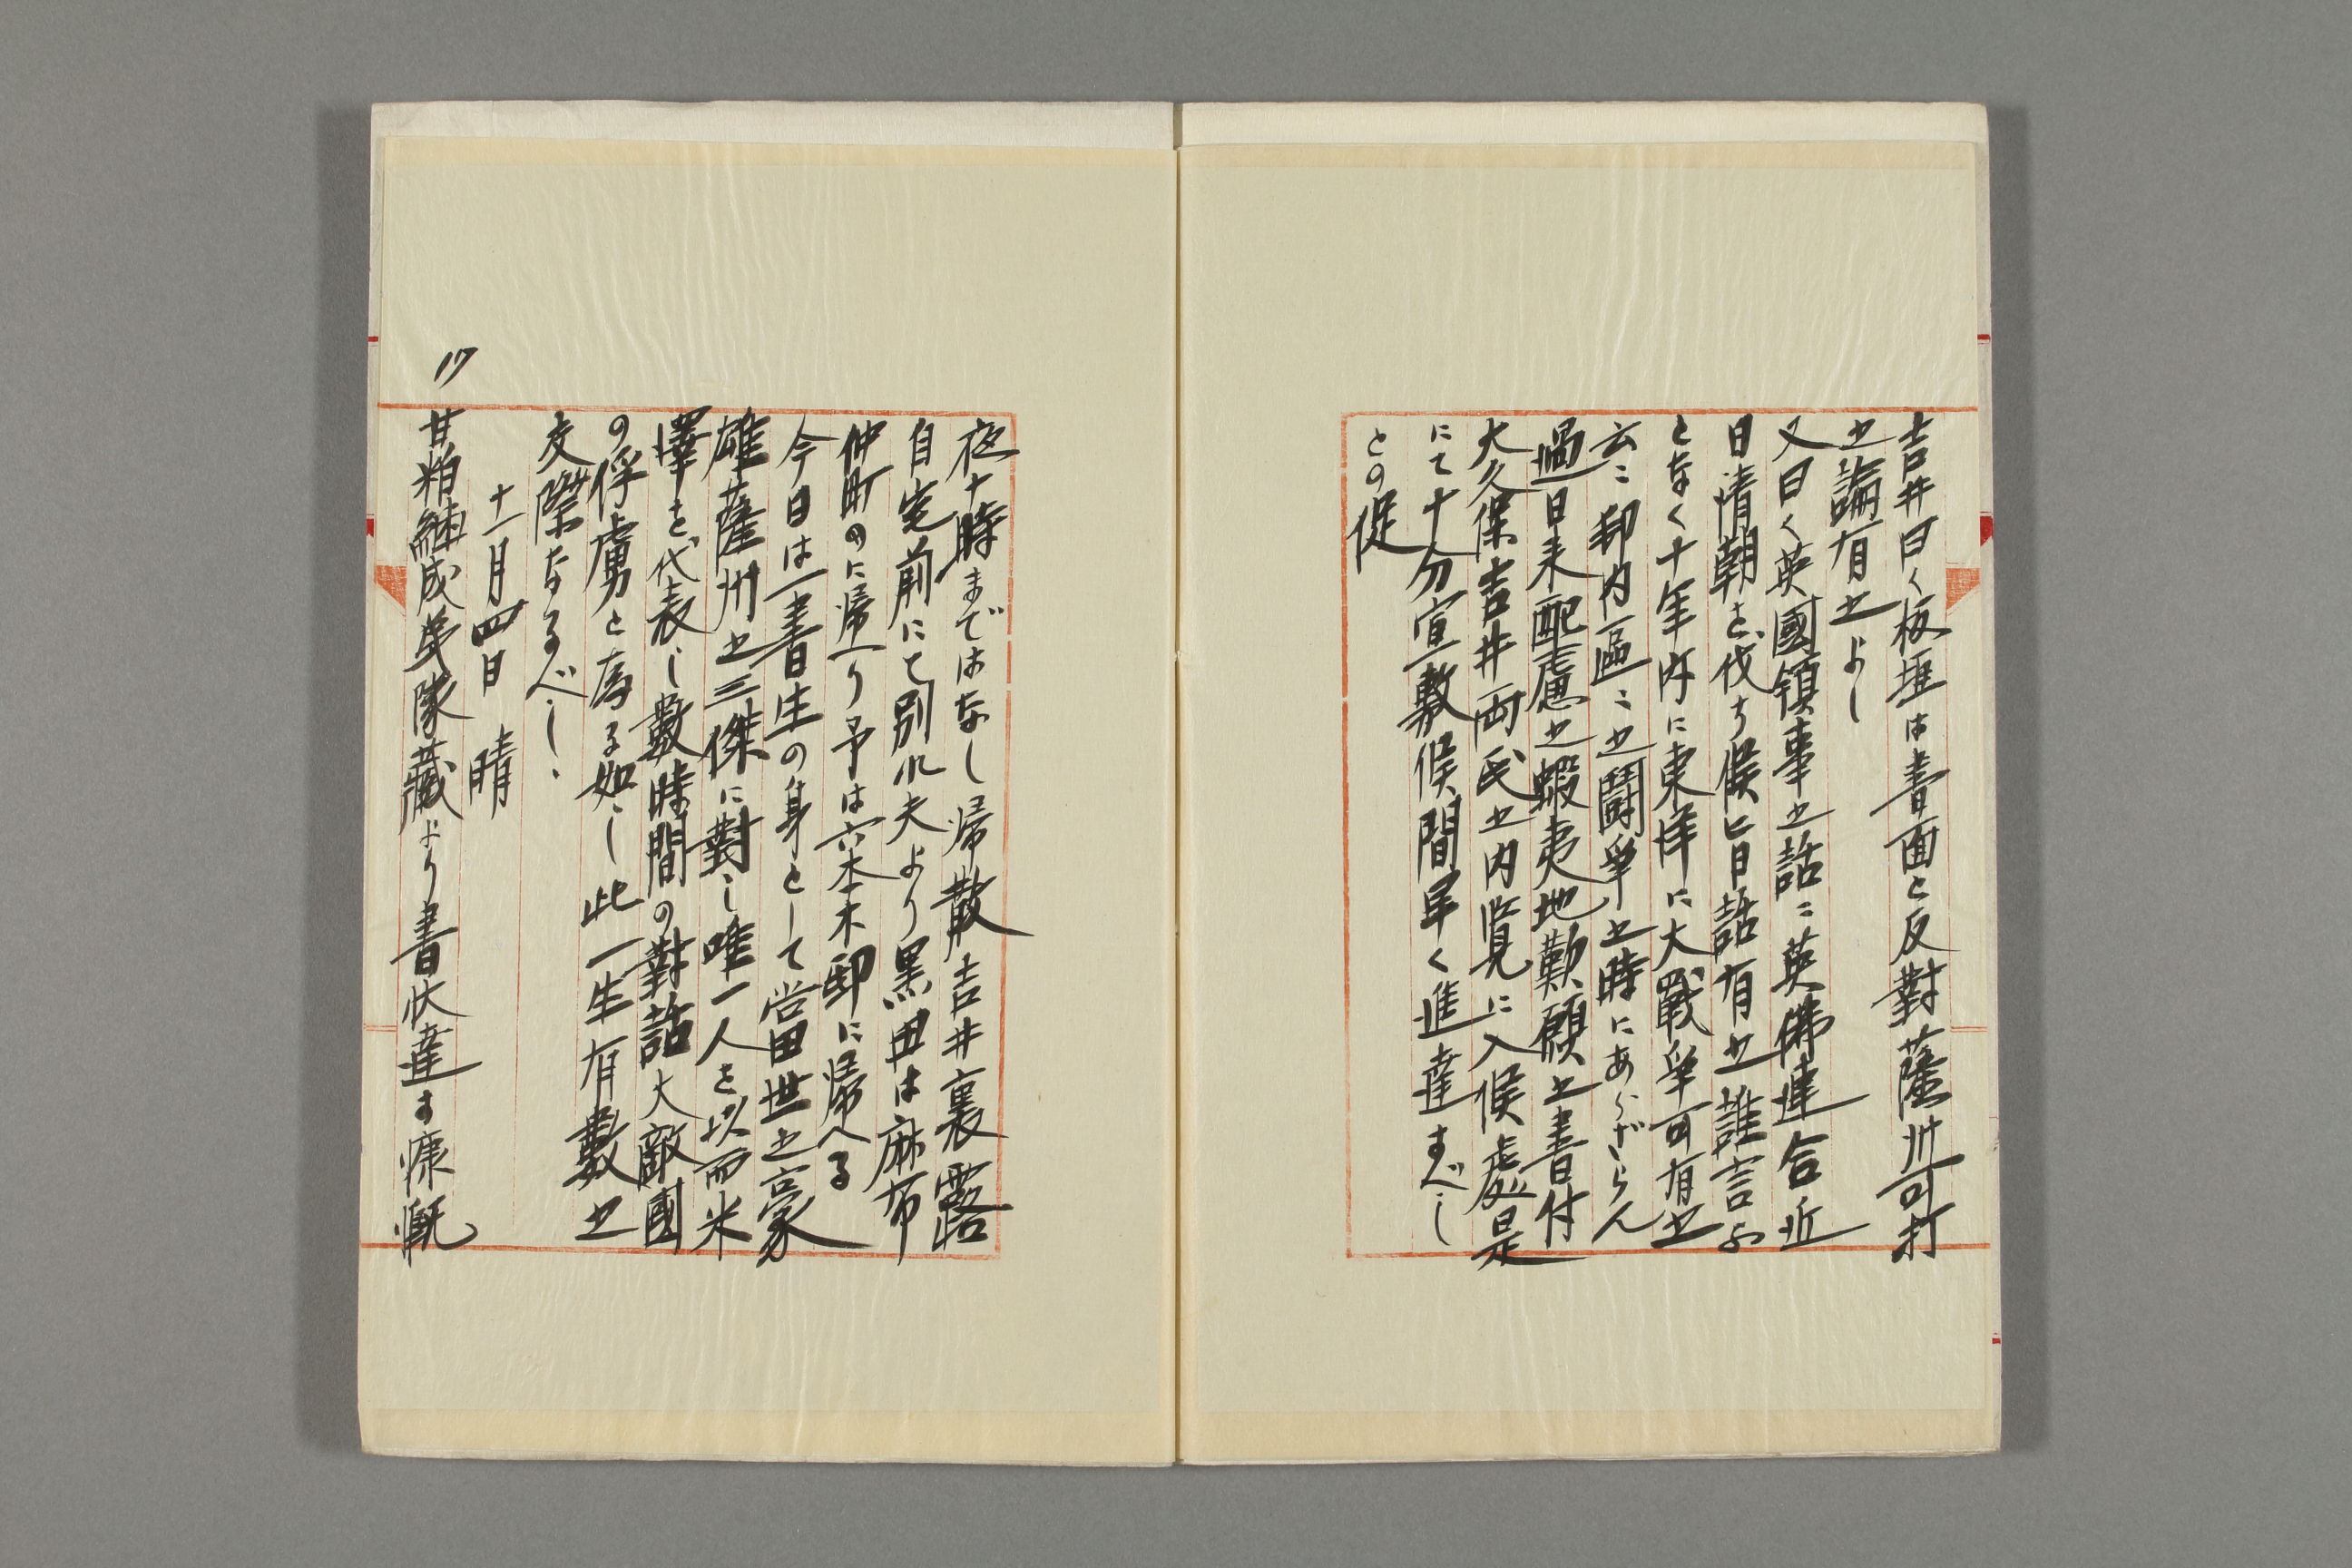 吉井曰く板垣は書面と反對薩州可打
之論有之よし
又曰く英國領事之話ニ英佛連合近
日清朝を伐ち候旨話有之誰言ふ
となく十年内に東洋に大戰爭可有之
云々邦内區々之鬪爭之時にあらざらん
過日来配慮之蝦夷地歎願之書付
大久保吉井両氏之内覧に入候處是
にて十分宜敷候間早く進達すべし
との促
夜十時まではなし帰散吉井裏霞
自宅前にて別れ夫より黒田は麻布
仲町のに帰り予は六本木邸に帰へる
今日は一書生の身として當世之豪
雄薩州之三傑に對し唯一人を以而米
澤を代表し數時間の對話大敵國
の俘虜と為る如し此一生有數之
交際なるべし
十一月四日 晴
17
甘粕継成夢隊藏より書状達す慷慨